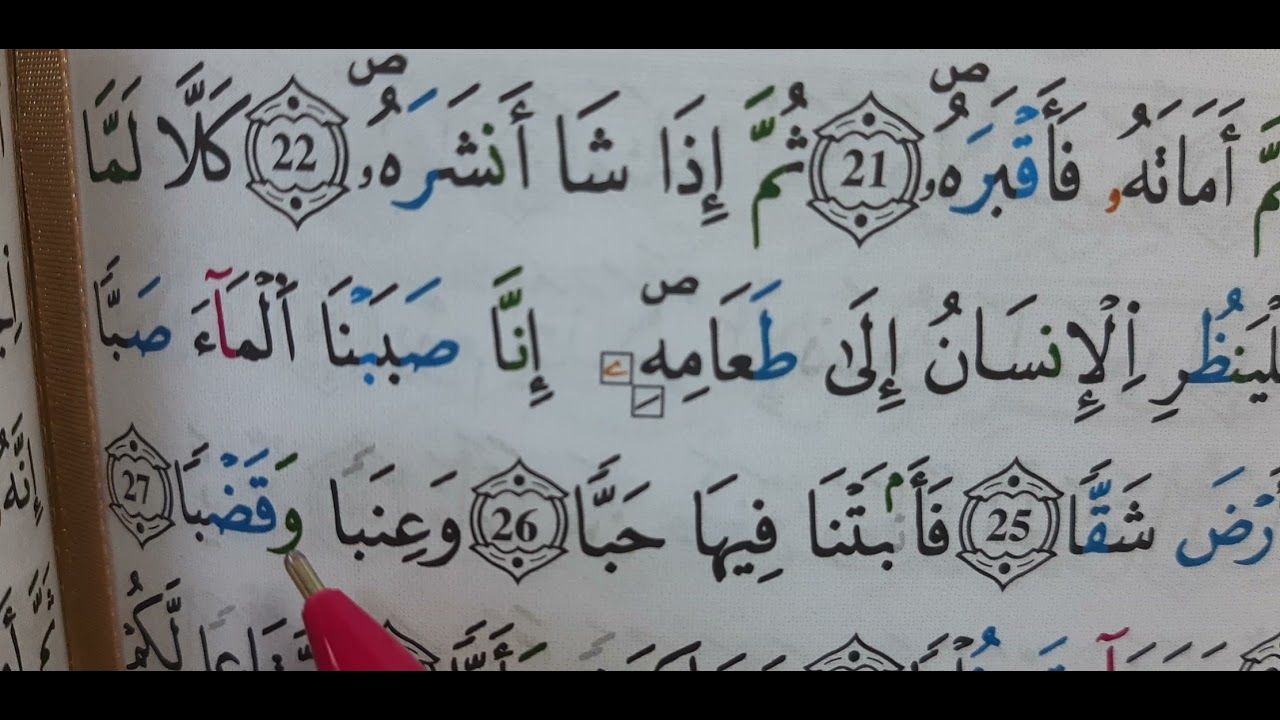 أَمَاتَهُۥ فَأَقْبَرَهُۥ ص 21 ثُمَّ إِذَا شَا أَنشَرَهُۥ ص 22 كَلَّا لَمَّا
لْيَنظُرِ اِ۬لْإِنسَانُ إِلَىٰ طَعَامِهِۦ ص إِنَّا صَبَبْنَا اَ۬لْمَآءَ صَبّٗا
شَقّٗا 25 فَأَنۢبَتْنَا فِيهَا حَبّٗا 26 وَعِنَبٗا وَقَضْبٗا 27